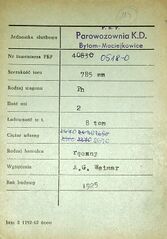 P.K.P.
Jednostka służbowa Parowozownia K.D.
Bytom-Maciejkowice
Nr inwentarza PKP 40830 0518-0
Szerokość toru 785 mm
Rodzaj wagonu Ph
Ilość osi 2
Ładowność w t. 8 ton
Ciężar własny
Rodzaj hamulca ręczny
Wytwórnia A.G. Weimar
Rok budowy 1925